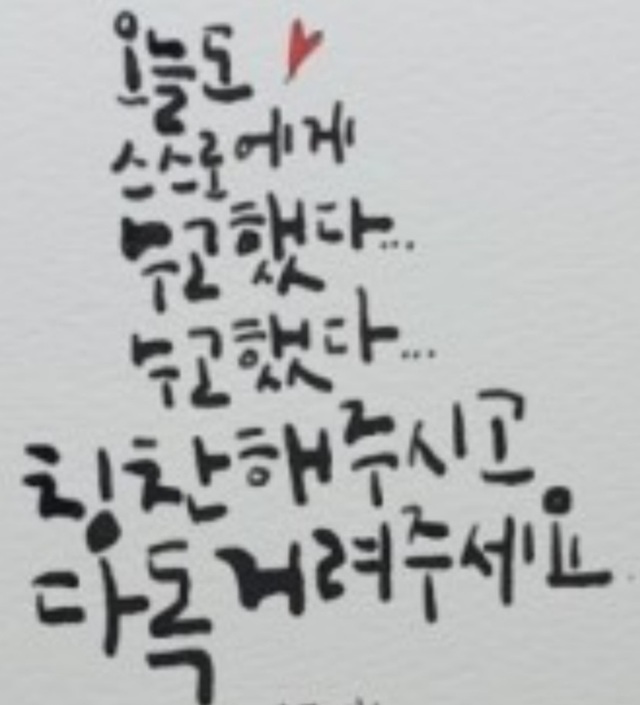 오늘도
스스로에게
수고했다...
수고했다...
칭찬해주시고
다독거려주세요